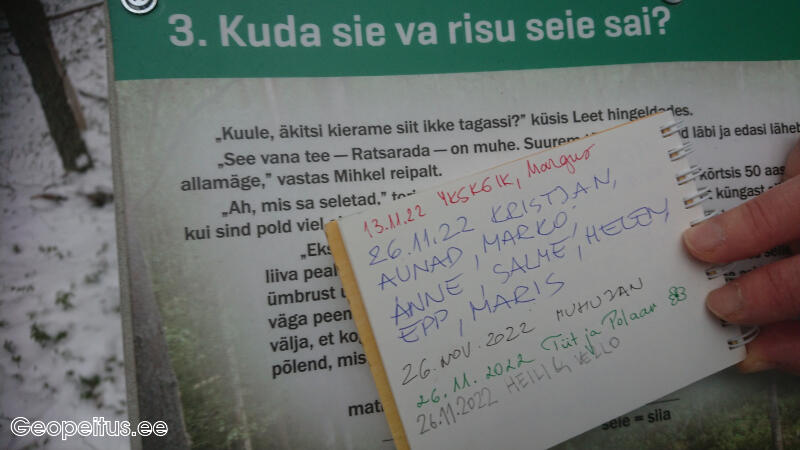 3. Kuda sie va risu seie sai?
„Kuule, äkitsi kierame siit ikke tagassi?” küsis Leet hingeldades.
„See vana tee — Ratsarada — on muhe. Suurem läbi ja edasi läheb
allamäge,” vastas Mihkel reipalt.
„Ah, mis sa seletad,” kõrtsis 50 aas
kui sind pold viel küngast
„Eks
liiva peal
ümbrust
väga peen
välja, et
põlend, mis
seie = siia
13.11.22 YKSKÕIK, Margus
26.11.22 KRISTJAN,
AUNAD, MARKO,
ANNE, SALME, HELEN,
EPP, MARIS
26. NOV. 2022 MUHUJAN
26.11.2022 Tiit ja Polaar
26.11.2022 HEILI & VELLO
Geopeitus.ee